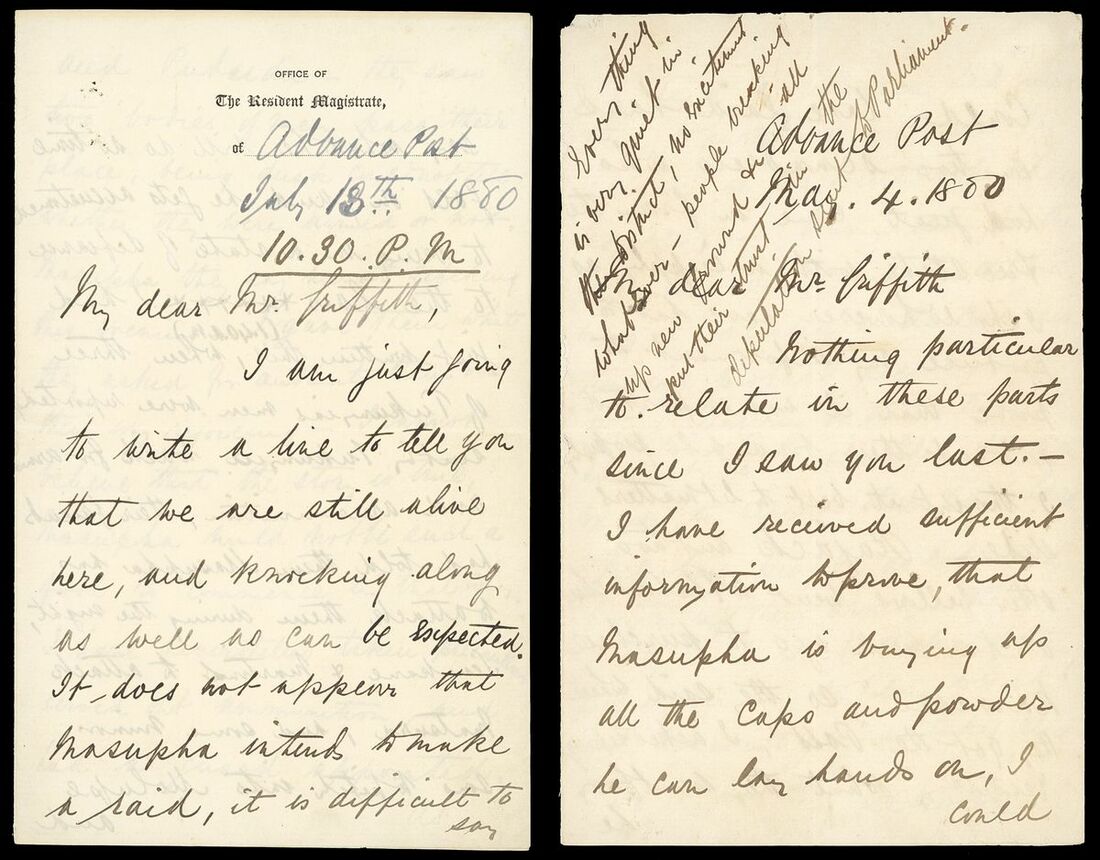 OFFICE OF
The Resident Magistrate,
of Advance Post
July 13th 1880
10.30. P. M
My dear Mr. Griffith,
I am just going
to write a line to tell you
that we are still alive
here, and knocking along
as well as can be expected.
It does not appear that
Masupha intends to make
a raid, it is difficult to
say
Every thing
is very quiet in
the District, no excitement
whatsoever - people breaking
up new ground & in all
put their trust in the
deputation sent Parliament.
Advance Post
May. 4. 1880
My dear Mr. Griffith
Nothing particular
to relate in these parts
since I saw you last. —
I have received sufficient
information to prove, that
Masupha is buying up
all the caps and powder
he can lay hands on, I
could